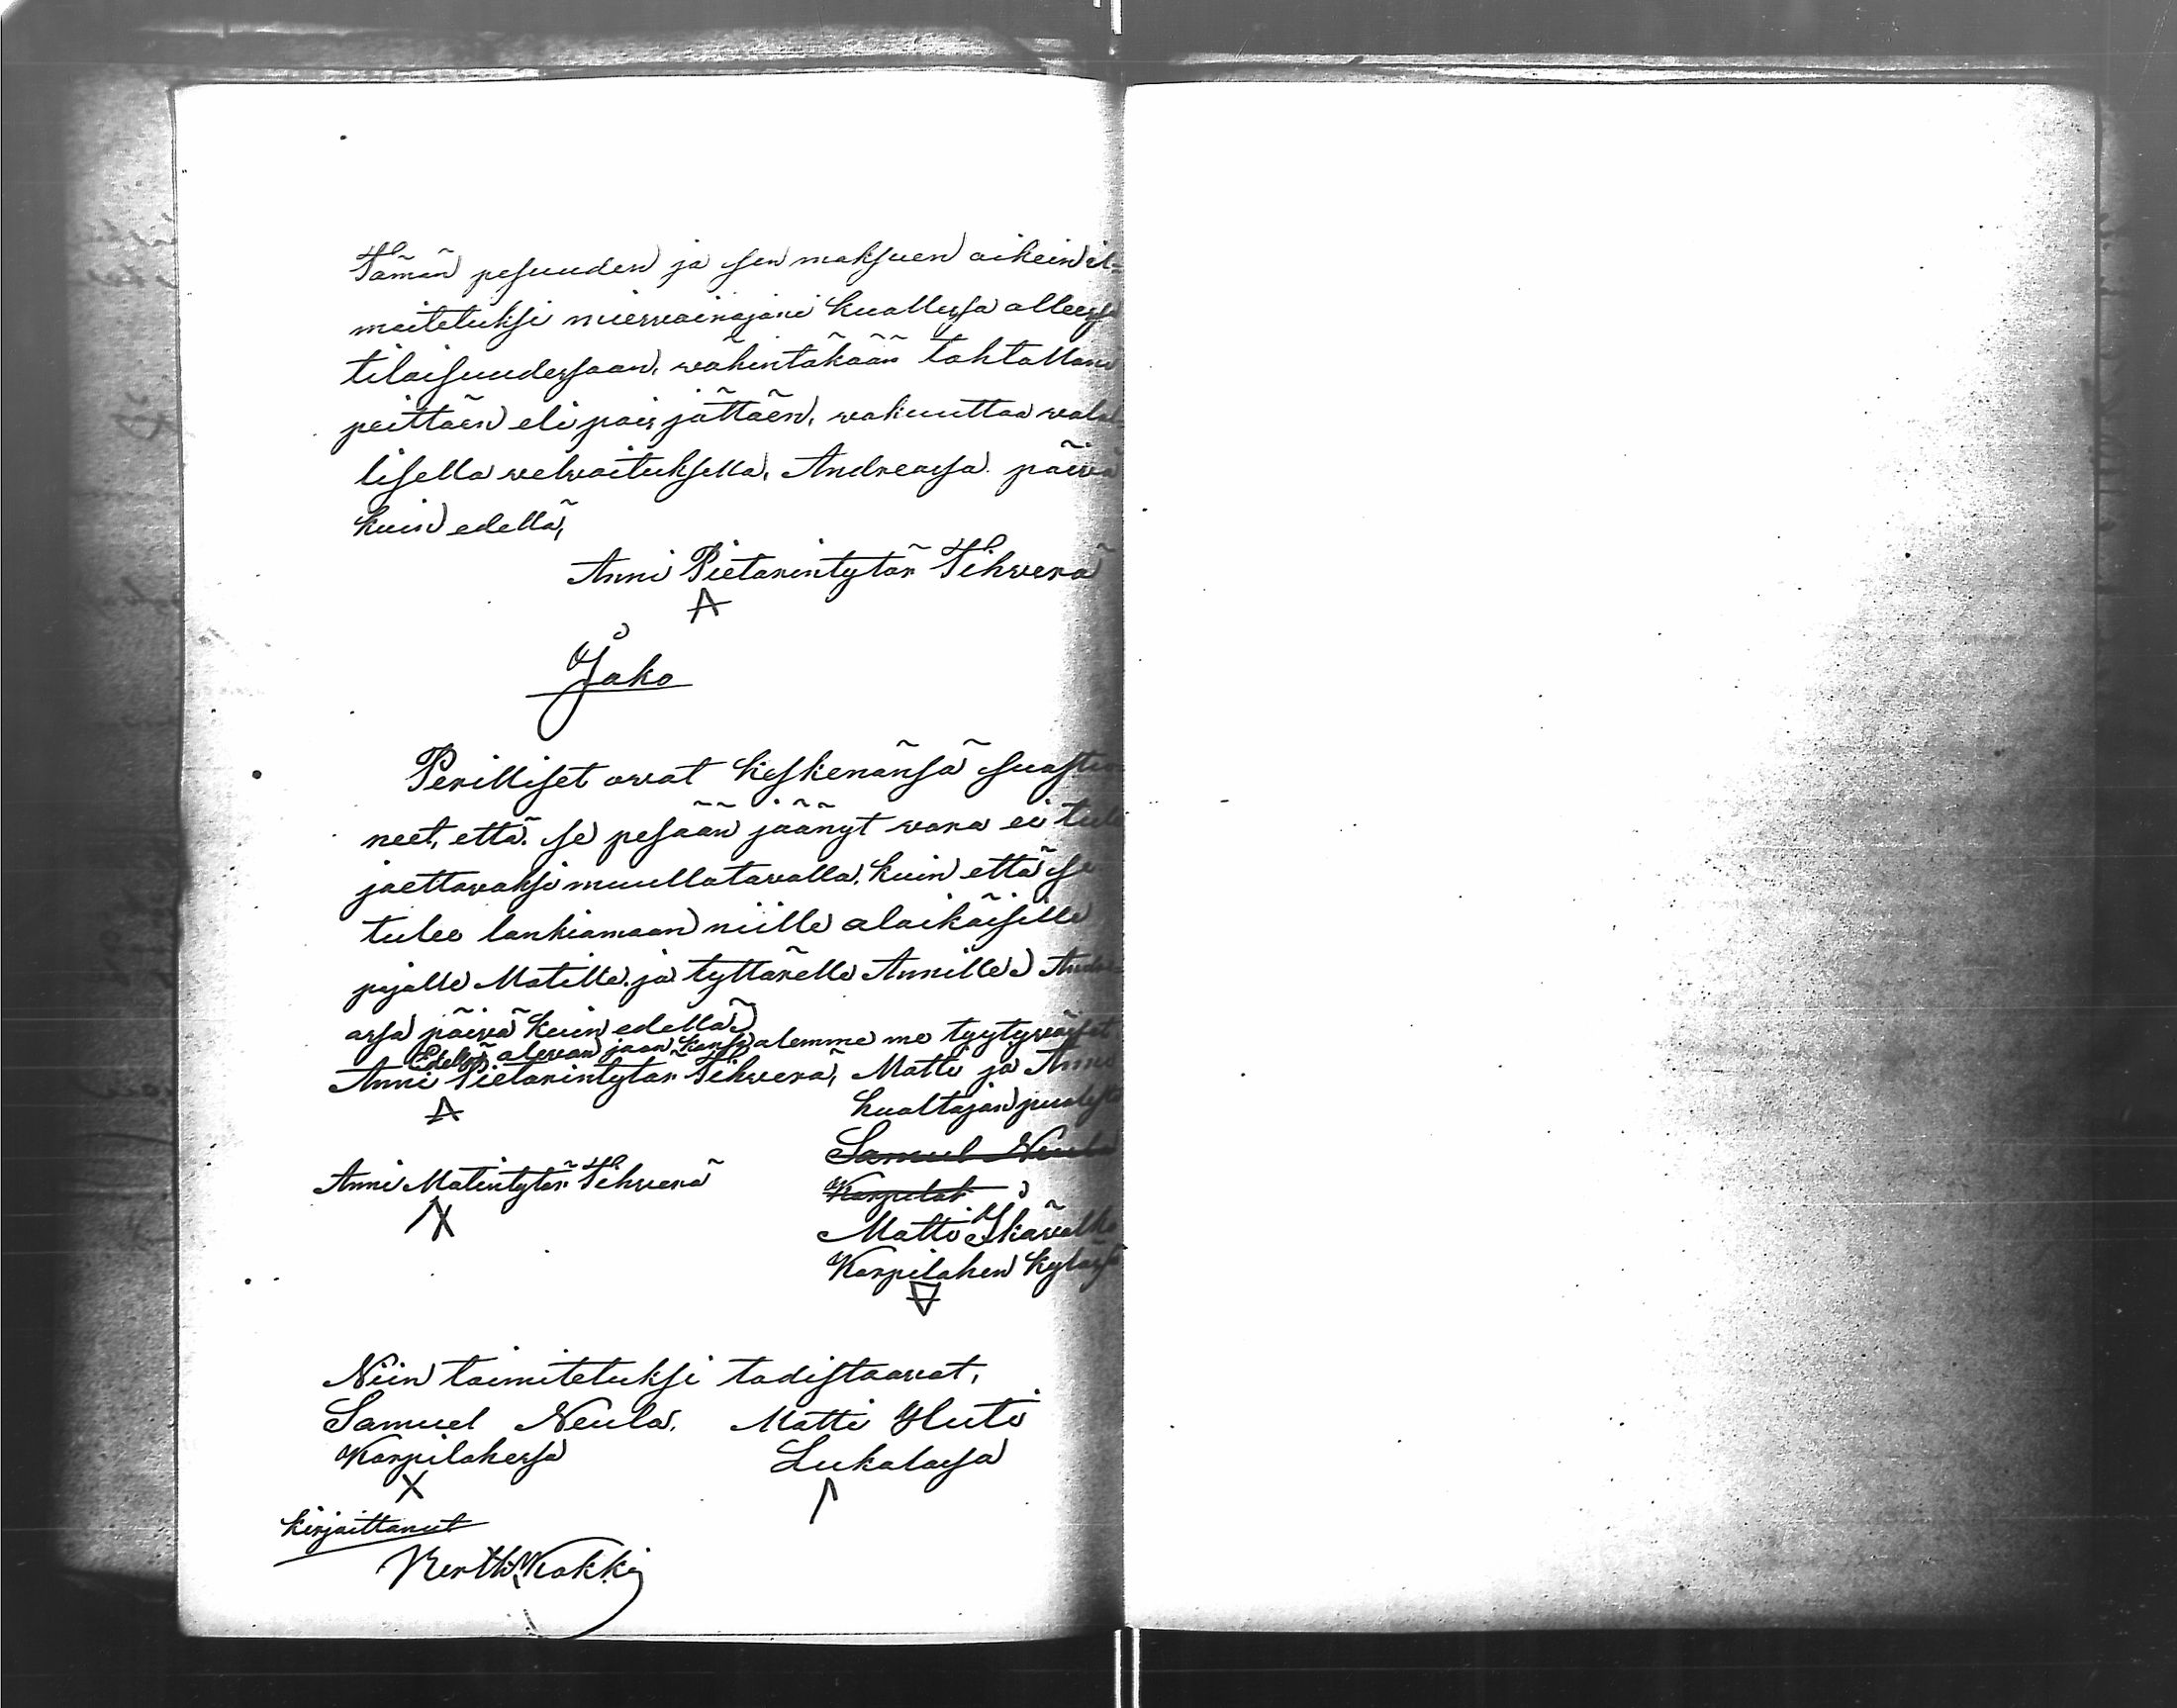 Tämän pesuuden ja sen maksuen oikein il-
moitetuksi miesvainajani kuollessa alleessa
tilaisuudessaan, vähintäkään tahtallani
peittäen eli pois jättäen, vakuuttaa valal-
lisella velvoituksella, Andreassa päivä
kuin edellä,
Anni Pietarintytär Tihverä
Jako
Perilliset ovat keskenänsä suastu-
neet, että se pesään jäänyt vara ei tule
jaettavaksi muullatavalla, kuin että se
tulee lankiamaan niille alaikäisille
pojalle Matille ja tyttärelle Annille Andre-
assa päivä kuin edellä
Edellä alevan jaan kansa alemme me tyytyväiset
Anni Pietarintytär Tihverä, Matti ja Anni
hualtajan puolesta
Samuel Neula
Anni Matintytär Tihverä
Karpilat
Matti Ikävalko
Karpilahen kylässä
Niin toimitetuksi todistaavat,
Samuel Neula. Matti Huti
Karpilahessa Lukalassa
Kirjoittanut
Pertti Kokki